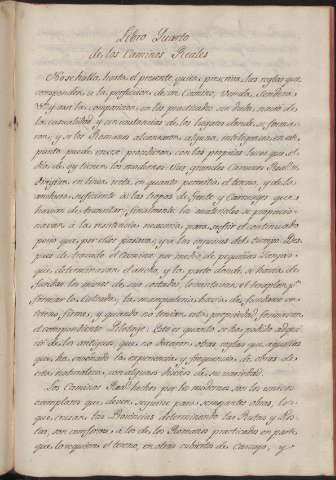 Libro Quarto
de los Caminos Reales
No se halla, hasta el presente, quien prescriva las reglas que
corresponden a la perfeccion de un Camino, Senda, Sendero,
&ª y assi la composicion en los practicados sin duda, nació de
la casualidad y circunstancias de los Lugares donde se forma-
ron, y si los Romanos alcanzaron alguna inteligencia en este
punto, puede creerse procedieron con las propias luces que el
dia de oy tienen los modernos: Sus grandes Caminos Reales
dirigian en linea recta, en quanto permitia el terreno, y de la
anchura suficiente a las tropas de gente y Carruages que
havian de transitar; finalmente los materiales se proporcio-
navan a la resistencia necesaria para sufrir el continuado
peso que por ellos pasava, y a las injurias del tiempo. Des-
pues de trazado el Camino por medio de pequeñas Zanjas
que determinavan el ancho, y la parte donde se havia de
fundar los muros de sus costados, levantavan el terraplen pª
formar la Calzada; la mampostería havia de fundarse en
terreno firme, y quando no tenian esta propiedad, fortificavan
el correspondiente Pilotage: Esto es quanto se ha podido adqui-
rir de los antiguos, que no dexaron otras reglas que aquellas
que ha enseñado la experiencia y frequencia de obras de
esta naturaleza, con algunos diseños de su variedad.
Los Caminos Reales hechos por los modernos son los unicos
exemplares que deven seguirse para semejantes obras, los
que cruzan las Provincias determinando las Rutas y Pos-
tas, son conforme a los de los Romanos practicados en parte
que lo requiere el terreno, en otras cubiertos de Cascajo, y